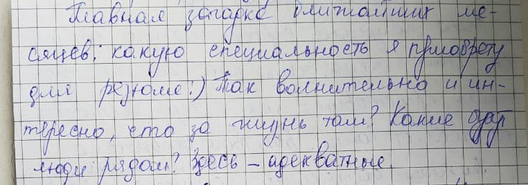 Главная загадка ближайших ме-
сяцев: какую специальность я приобрету
для резюме:) Так волнительно и ин-
тересно, что за жизнь там? Какие
люди рядом? Здесь – адекватные.